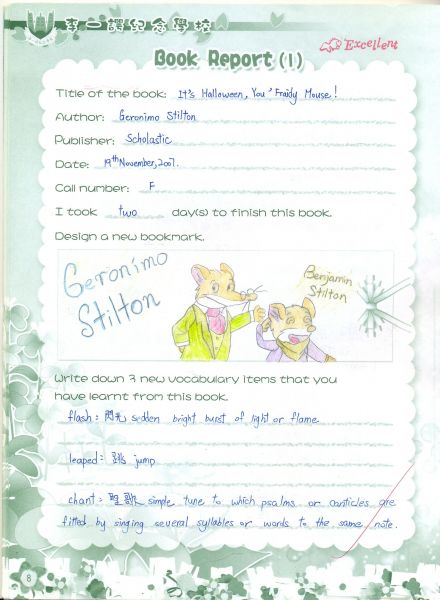 李一諤紀念學校
Excellent
Book Report (1)
Title of the book: It's Halloween, You 'Fraidy Mouse!
Author: Geronimo Stilton
Publisher: Scholastic
Date: 19th November, 2007.
Call number: F
I took two day(s) to finish this book.
Design a new bookmark.
Geronimo
Stilton
Benjamin
Stilton
Write down 3 new vocabulary items that you
have learnt from this book.
flash: 閃光 sudden bright burst of light or flame
leaped: 跳 jump
chant: 聖歌 simple tune to which psalms or canticles are
fitted by singing several syllables or words to the same note.
8